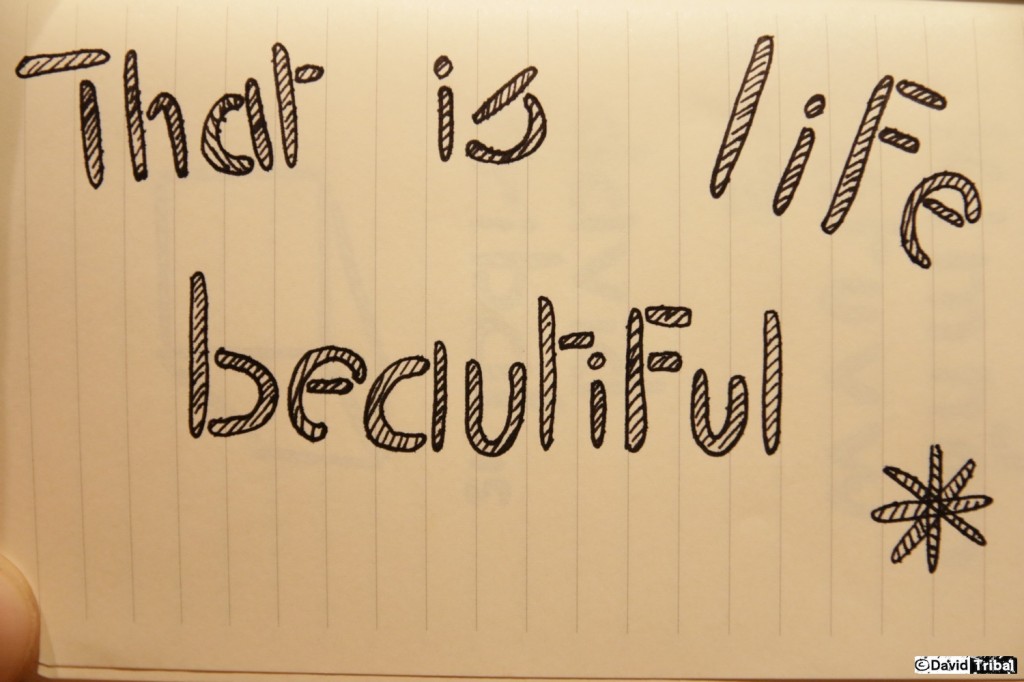 That is life
beautiful
©David Tribal